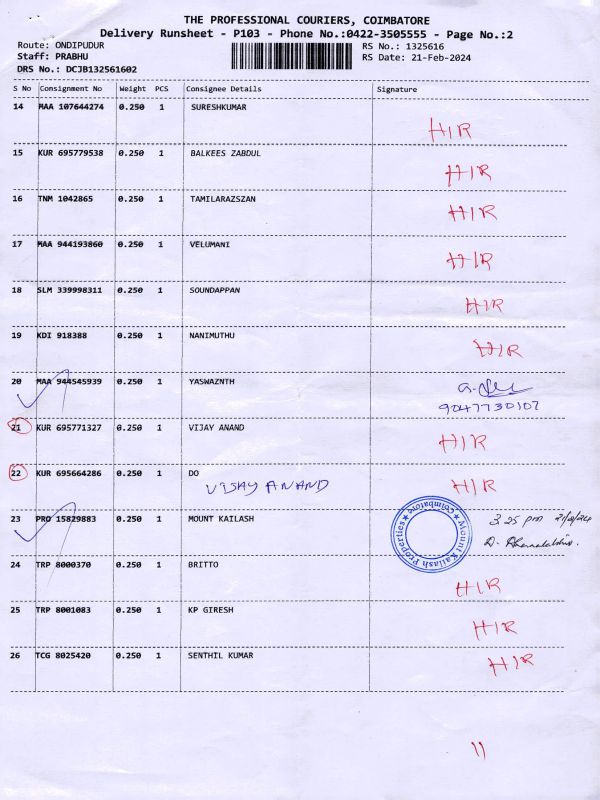 THE PROFESSIONAL COURIERS, COIMBATORE
Delivery Runsheet - P103 - Phone No.:0422-3505555 - Page No.:2
Route: ONDIPUDUR RS No.: 1325616
Staff: PRABHU RS Date: 21-Feb-2024
DRS No.: DCJB132561602
S No Consignment No Weight PCS Consignee Details Signature
14 MAA 107644274 0.250 1 SURESHKUMAR
HIR
15 KUR 695779538 0.250 1 BALKEES ZABDUL
HIR
16 TNM 1042865 0.250 1 TAMILARAZSZAN
HIR
17 MAA 944193860 0.250 1 VELUMANI
HIR
18 SLM 339998311 0.250 1 SOUNDAPPAN
HIR
19 KDI 918388 0.250 1 NANIMUTHU
HIR
20 MAA 944545939 0.250 1 YASWAZNTH
9047730107
21 KUR 695771327 0.250 1 VIJAY ANAND
HIR
22 KUR 695664286 0.250 1 DO
VIJAY ANAND HIR
23 PRO 15829883 0.250 1 MOUNT KAILASH
Mount Kailash Properties
Coimbatore
3.25 pm
24 TRP 8000370 0.250 1 BRITTO
HIR
25 TRP 8001083 0.250 1 KP GIRESH
HIR
26 TCG 8025420 0.250 1 SENTHIL KUMAR
HIR
11